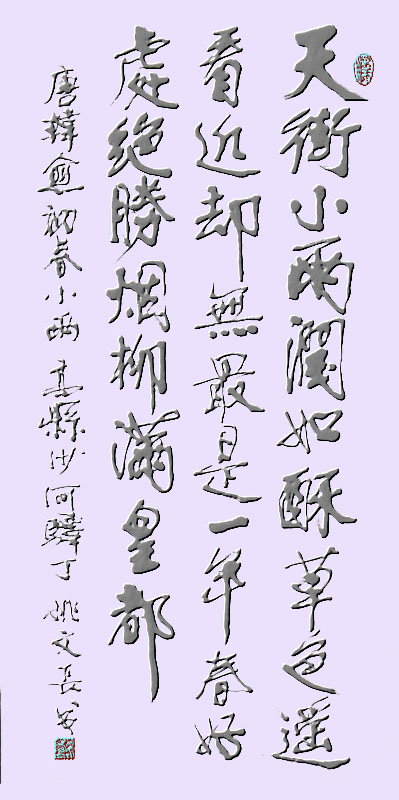 天街小雨潤如酥草色遥
看近却無最是一年春好
處絶勝烟柳滿皇都
唐韓愈初春小雨 高縣沙河驛丁 姚文長書